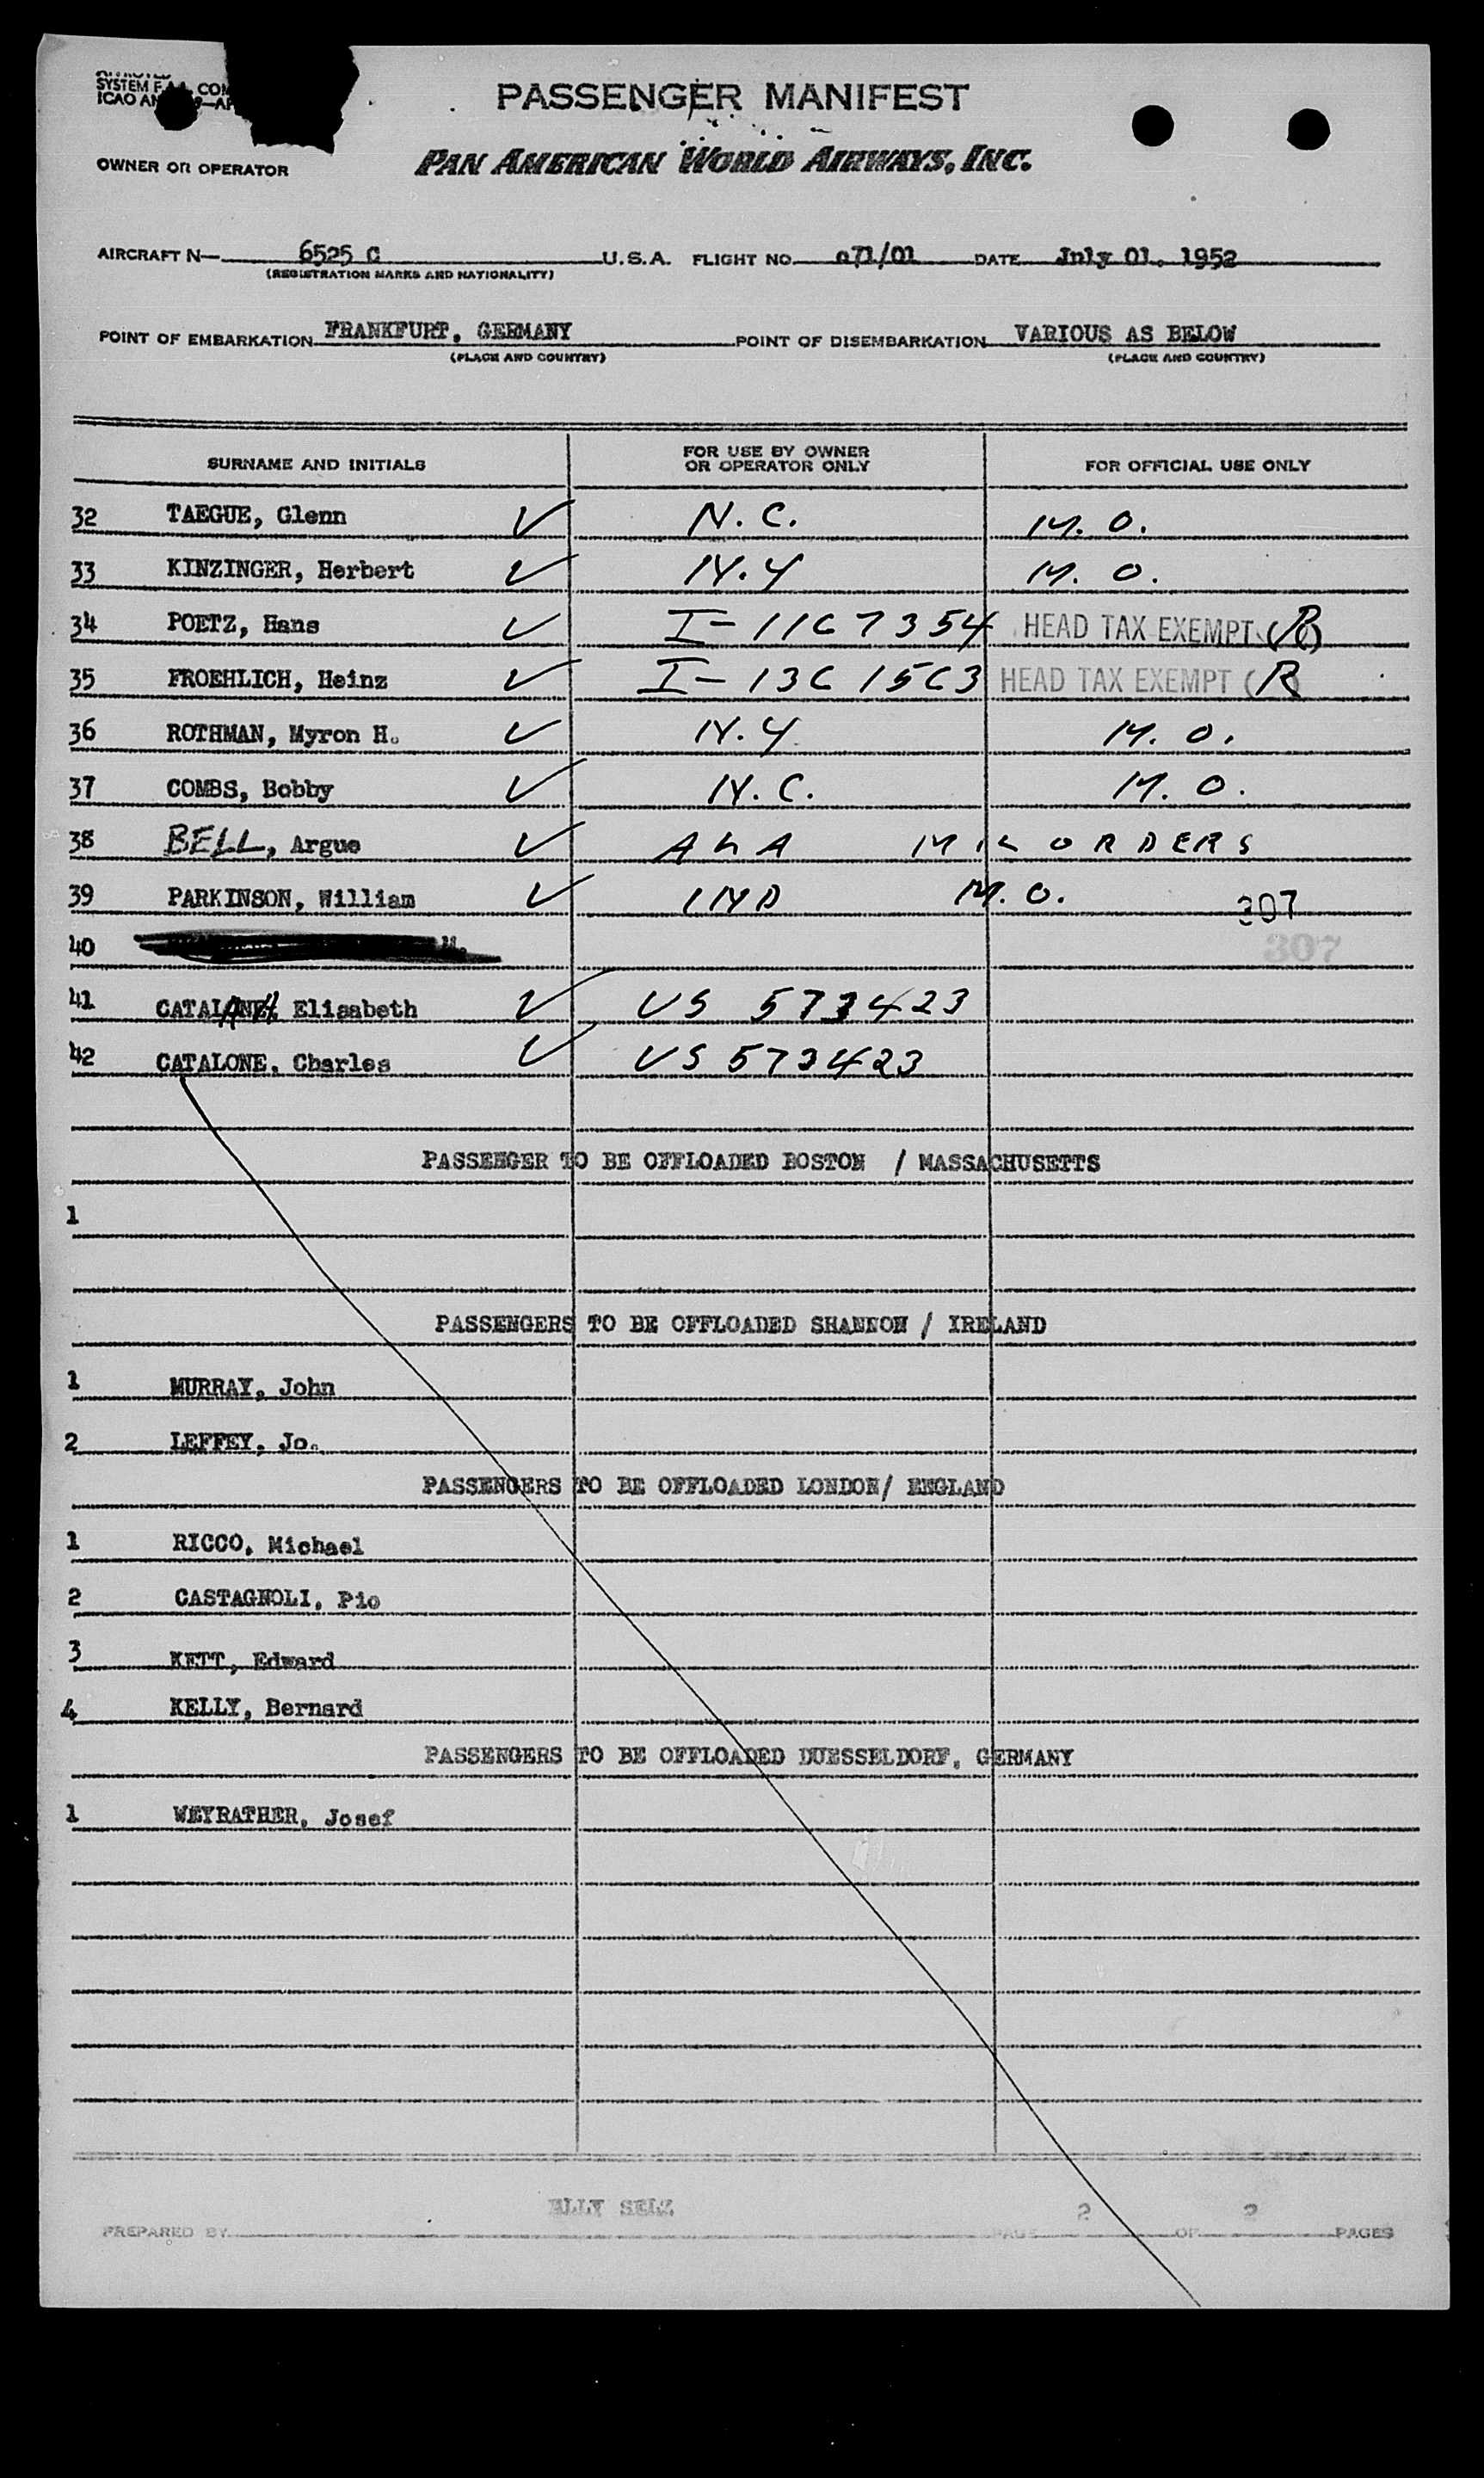 SYSTEM F.A.A. COM
ICAO AN 9—AP
PASSENGER MANIFEST
OWNER OR OPERATOR PAN AMERICAN WORLD AIRWAYS, INC.
AIRCRAFT N— 6525 C U.S.A. FLIGHT NO. 071/01 DATE July 01. 1952
(REGISTRATION MARKS AND NATIONALITY)
POINT OF EMBARKATION FRANKFURT, GERMANY POINT OF DISEMBARKATION VARIOUS AS BELOW
(PLACE AND COUNTRY) (PLACE AND COUNTRY)
SURNAME AND INITIALS FOR USE BY OWNER OR OPERATOR ONLY FOR OFFICIAL USE ONLY
32 TAEGUE, Glenn ✓ N.C. M.O.
33 KINZINGER, Herbert ✓ N.Y M.O.
34 POETZ, Hans ✓ I-1167354 HEAD TAX EXEMPT (R)
35 FROEHLICH, Heinz ✓ I-1361563 HEAD TAX EXEMPT (R)
36 ROTHMAN, Myron H. ✓ N.Y. M.O.
37 COMBS, Bobby ✓ N.C. M.O.
38 BELL, Argue ✓ ALA MIL ORDERS
39 PARKINSON, William ✓ IND M.O. 307
40 307
41 Elisabeth ✓ US 573423
42 CATALONE, Charles ✓ US 573423
PASSENGER TO BE OFFLOADED BOSTON / MASSACHUSETTS
1
PASSENGERS TO BE OFFLOADED SHANNON / IRELAND
1 MURRAY, John
2 LEFFEY, Jo.
PASSENGERS TO BE OFFLOADED LONDON/ ENGLAND
1 RICCO, Michael
2 CASTAGNOLI, Pio
3 KETT, Edward
4 KELLY, Bernard
PASSENGERS TO BE OFFLOADED DUESSELDORF, GERMANY
1 WEYRATHER, Josef
PREPARED BY ELLY SELZ PAGE 2 OF 2 PAGES